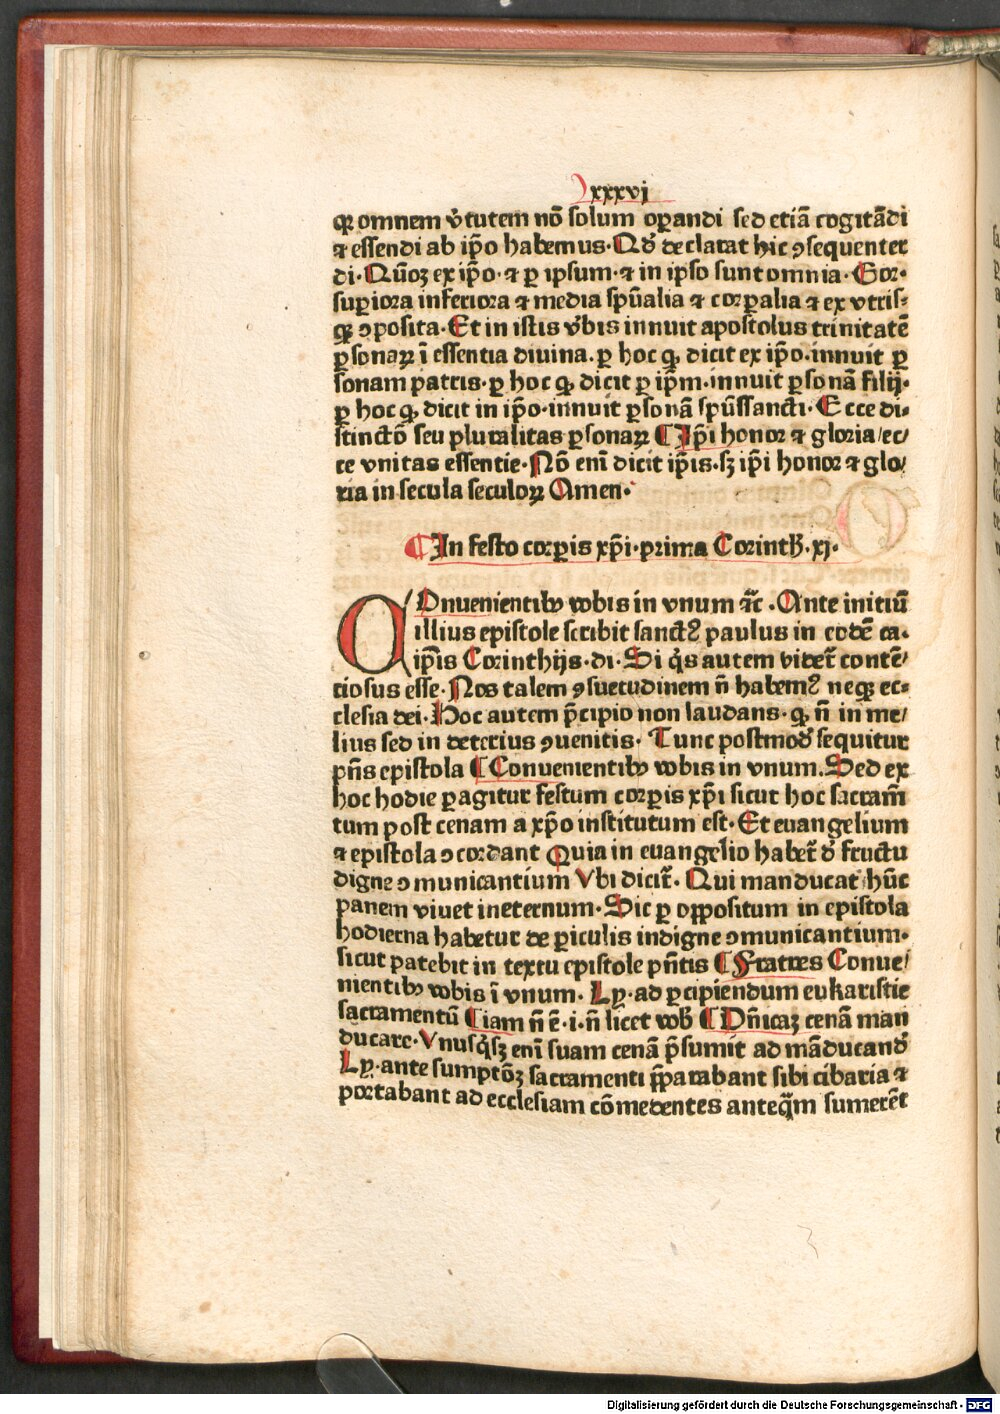 xxxvi
qꝫ omnem v̓tutem nō solum oꝑandi sed etiā cogitādi
⁊ essendi ab ip̄o habemus. Qd̓ declarat hic ꝯsequenter
di. Qm̄oꝫ ex ip̄o. ⁊ ꝑ ipsum. ⁊ in ipso sunt omnia. Cor.
suꝑiora inferiora ⁊ media spūalia ⁊ corꝑalia ⁊ ex vtris⸗
qꝫ ꝯposita. Et in istis v̓bis innuit apostolus trinitatē
ꝑsonaꝝ ī essentia diuina. ꝑ hoc ꝙ dicit ex ip̄o. innuit ꝑ
sonam patris. ꝑ hoc ꝙ dicit ꝑ ip̄m. innuit ꝑsonā filij.
ꝑ hoc ꝙ dicit in ip̄o. innuit ꝑsonā spūssancti. Ecce di⸗
stinctō seu pluralitas ꝑsonaꝝ ¶ Ip̄i honor ⁊ gloria/ec/
ce vnitas essentie. Nō enī dicit ip̄is. sꝫ ip̄i honor ⁊ glo/
ria in secula seculoꝝ Amen.
¶ In festo corꝑis xp̄i. prima Corinth̓. xj.
COnuenientibꝰ vobis in vnum ⁊c̄. Ante initiū
illius epistole scribit sanctꝰ paulus in eodē ca.
ip̄is Corinthijs. di. Si q̓s autem videt̄ contē/
ciosus esse. Nos talem ꝯsuetudinem n̄ habemꝰ neqꝫ ec⸗
clesia dei. Hoc autem p̄cipio non laudans. ꝙ n̄ in me/
lius sed in deterius ꝯuenitis. Tunc postmod̓ sequitur
pn̄s epistola ¶ Conuenientibꝰ vobis in vnum. Sed ex
hoc hodie ꝑagitur festum corꝑis xp̄i sicut hoc sacram̄
tum post cenam a xp̄o institutum est. Et euangelium
⁊ epistola ꝯcordant Quia in euangelio habet̄ d̓ fructu
digne ꝯmunicantium Vbi dicit̄. Qui manducat hūc
panem viuet ineternum. Sic ꝑ oppositum in epistola
hodierna habetur de ꝑiculis indigne ꝯmunicantium.
sicut patebit in textu epistole pn̄tis ¶ Fratres Conue/
nientibꝰ vobis ī vnum. Lꝑ. ad ꝑcipiendum eukaristie
sacramentū ¶ iam n̄ ē. i. n̄ licet vob̓ ¶ Dn̄icaꝫ cenā man
ducare. Vnusq̓sꝫ enī suam cenā p̄sumit ad māducand̓
Lꝑ. ante sumptōꝫ sacramenti p̄parabant sibi cibaria ⁊
portabant ad ecclesiam cōmedentes anteq̄m sumerēt
Digitalisierung gefördert durch die Deutsche Forschungsgemeinschaft - DFG